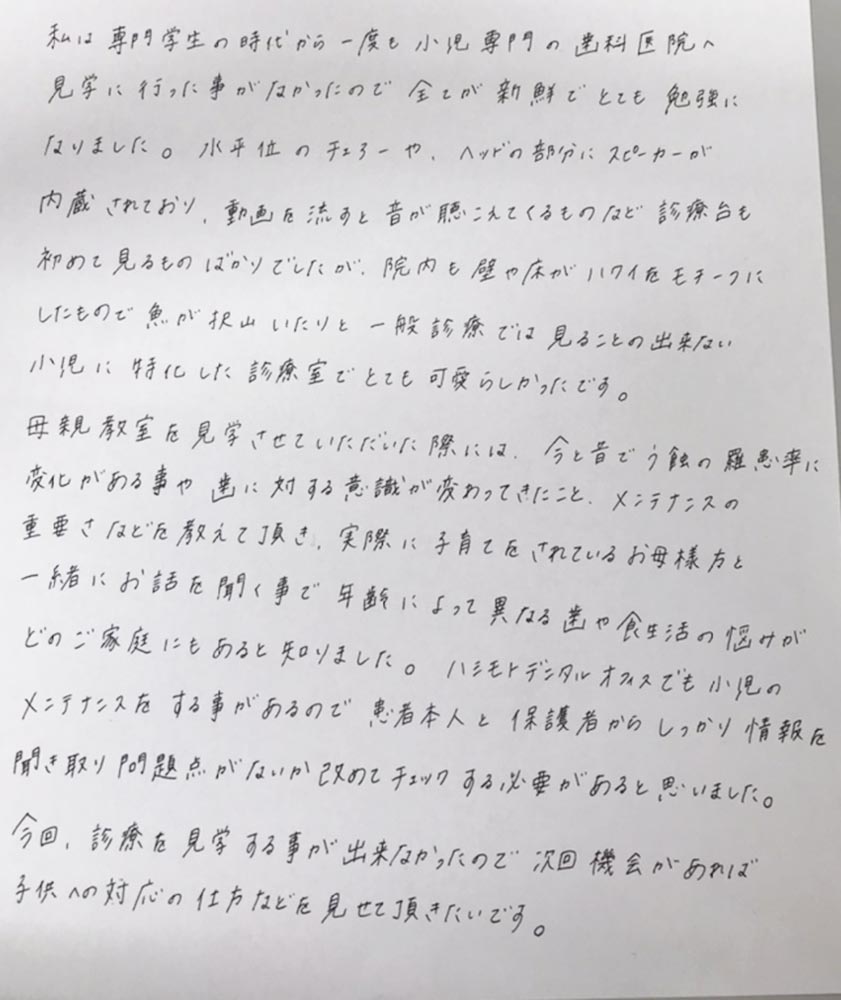 私は専門学生の時代から一度も小児専門の歯科医院へ
見学に行った事がなかったので全てが新鮮でとても勉強に
なりました。水平位のチェアーや、ヘッドの部分にスピーカーが
内蔵されており、動画を流すと音が聴こえてくるものなど診療台も
初めて見るものばかりでしたが、院内も壁や床がハワイをモチーフに
したもので魚が沢山いたりと一般診療では見ることの出来ない
小児に特化した診療室でとても可愛らしかったです。
母親教室を見学させていただいた際には、今と昔でう蝕の羅患率に
変化がある事や歯に対する意識が変わってきたこと、メンテナンスの
重要さなどを教えて頂き、実際に子育てをされているお母様方と
一緒にお話を聞く事で年齢によって異なる歯や食生活の悩みが
どのご家庭にもあると知りました。ハシモトデンタルオフィスでも小児の
メンテナンスをする事があるので患者本人と保護者からしっかり情報を
聞き取り問題点がないか改めてチェックする必要があると思いました。
今回、診療を見学する事が出来なかったので次回機会があれば
子供への対応の仕方などを見せて頂きたいです。